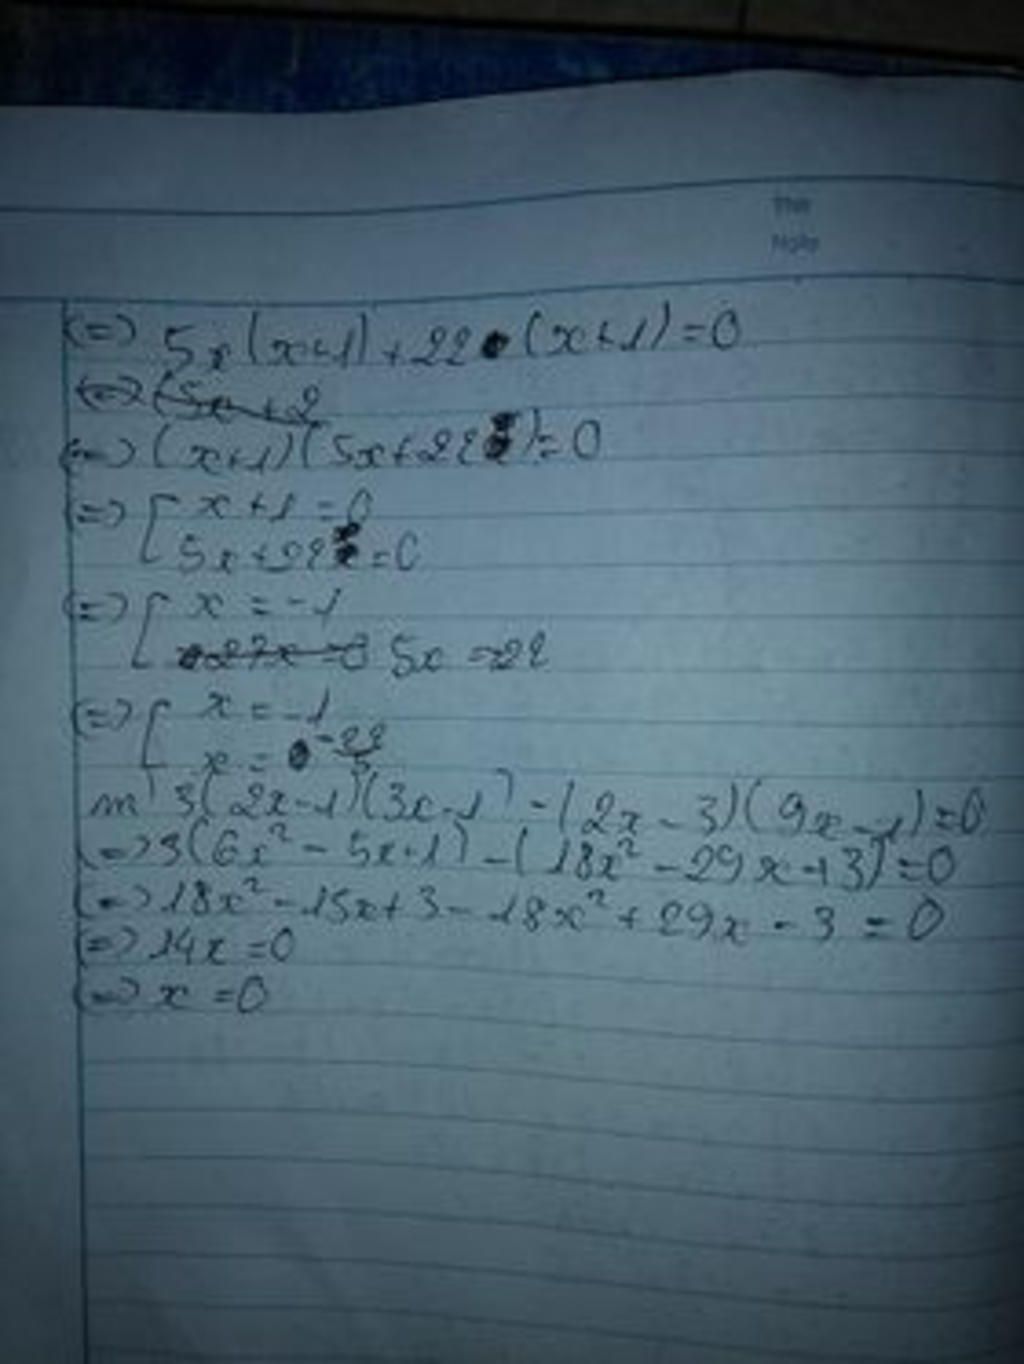 Thứ
Ngày
(=) 5x(x+1)+22(x+1)=0
(=) (5x+2
(=) (x+1)(5x+22)=0
(=) [ x+1=0
5x+22=0
(=) [ x=-1
27x=0 5x=-22
(=) [ x=-1
x=-22/5
m) 3(2x-1)(3x-1)-(2x-3)(9x-1)=0
(=) 3(6x²-5x+1)-(18x²-29x+3)=0
(=) 18x²-15x+3-18x²+29x-3=0
(=) 14x=0
(=) x=0